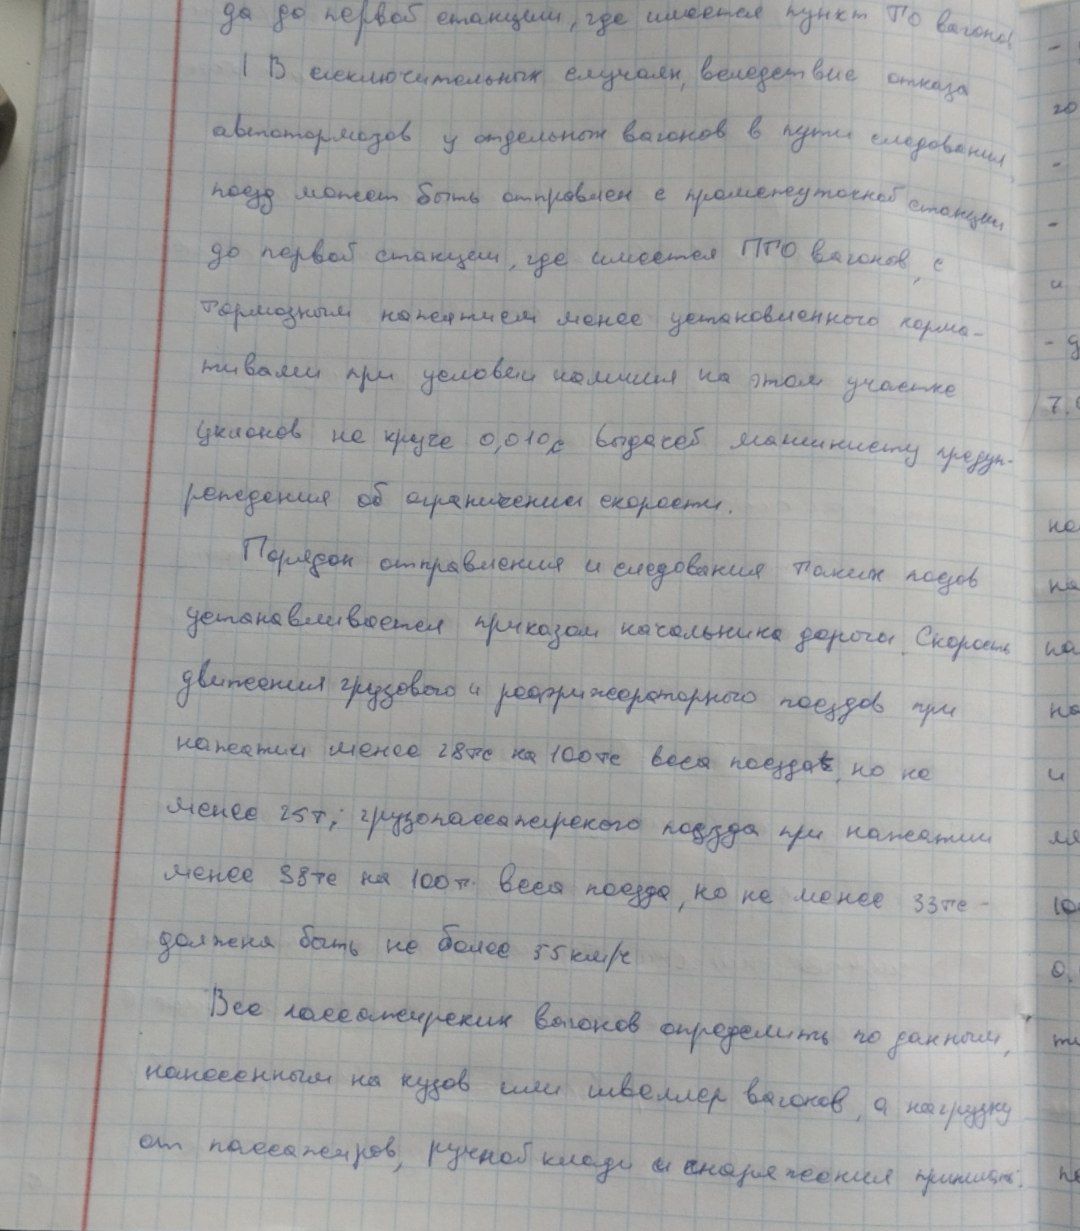 да до первой станции, где имеется пункт ТО вагонов
В исключительных случаях, вследствие отказа
автотормозов у отдельных вагонов в пути следования,
поезд может быть отправлен с промежуточной станции
до первой станции, где имеется ПТО вагонов, с
тормозным нажатием менее установленного норма-
тивами при условии наличия на этом участке
уклонов не круче 0,010, с выдачей машинисту предуп-
реждения об ограничении скорости.
Порядок отправления и следования таких поездов
устанавливается приказом начальника дороги. Скорость
движения грузового и рефрижераторного поездов при
нажатии менее 28тс на 100тс веса поезда, но не
менее 25т; грузопассажирского поезда при нажатии
менее 38тс на 100т. веса поезда, но не менее 33тс -
должна быть не более 55км/ч
Вес пассажирских вагонов определить по данным,
нанесенным на кузов или швеллер вагонов, а нагрузку
от пассажиров, ручной клади и снаряжения принимать: